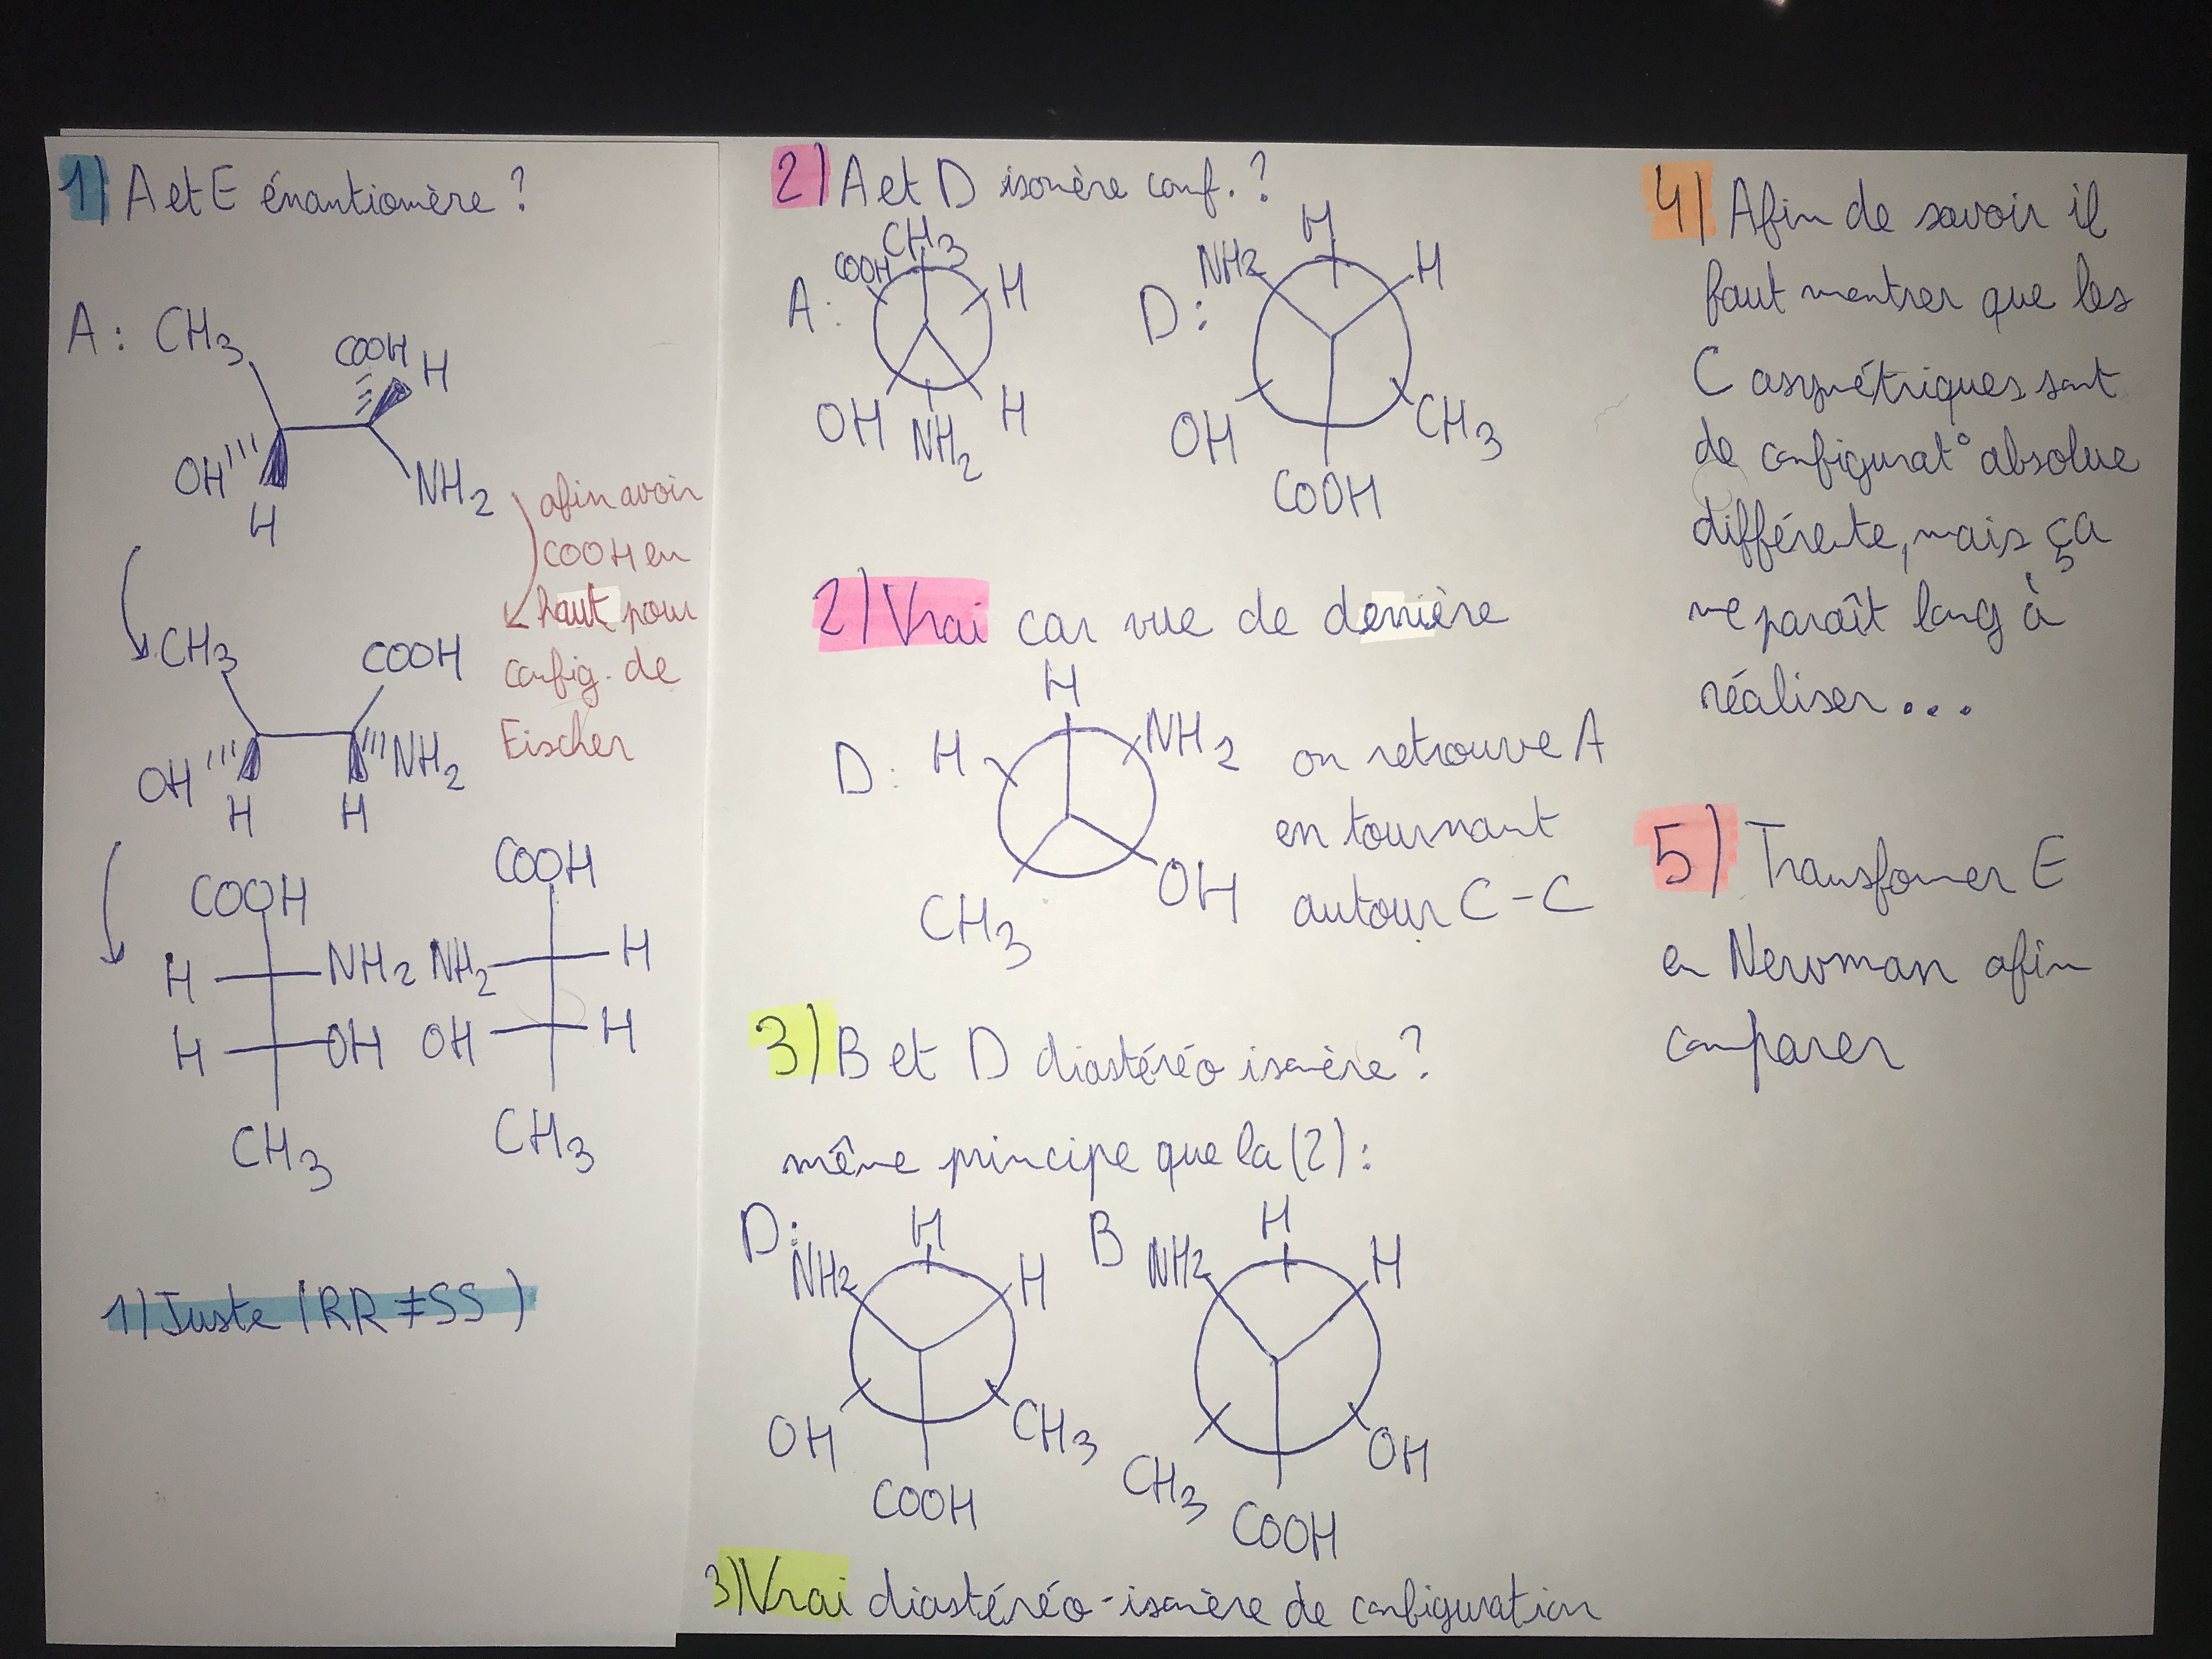 1) A et E énantiomère ?
A : CH3
COOH H
OH
H
NH2
afin avoir
COOH en
haut pour
config. de
Fischer
CH3
COOH
OH
NH2
H
H
COOH
COOH
H
NH2
NH2
H
H
OH
OH
H
CH3
CH3
1) Juste (RR ≠ SS)
2) A et D isomère conf. ?
A :
COOH
CH3
H
OH
NH2
H
D :
NH2
H
H
OH
CH3
COOH
2) Vrai car vue de derrière
D :
H
H
NH2
CH3
OH
on retrouve A
en tournant
autour C-C
3) B et D diastéréo isomère ?
même principe que la (2) :
D :
NH2
H
H
OH
CH3
COOH
B
NH2
H
H
CH3
OH
COOH
3) Vrai diastéréo-isomère de configuration
4) Afin de savoir il
faut montrer que les
C asymétriques sont
de configurat° absolue
différente, mais ça
me paraît long à
réaliser...
5) Transfomer E
en Newman afin
comparer